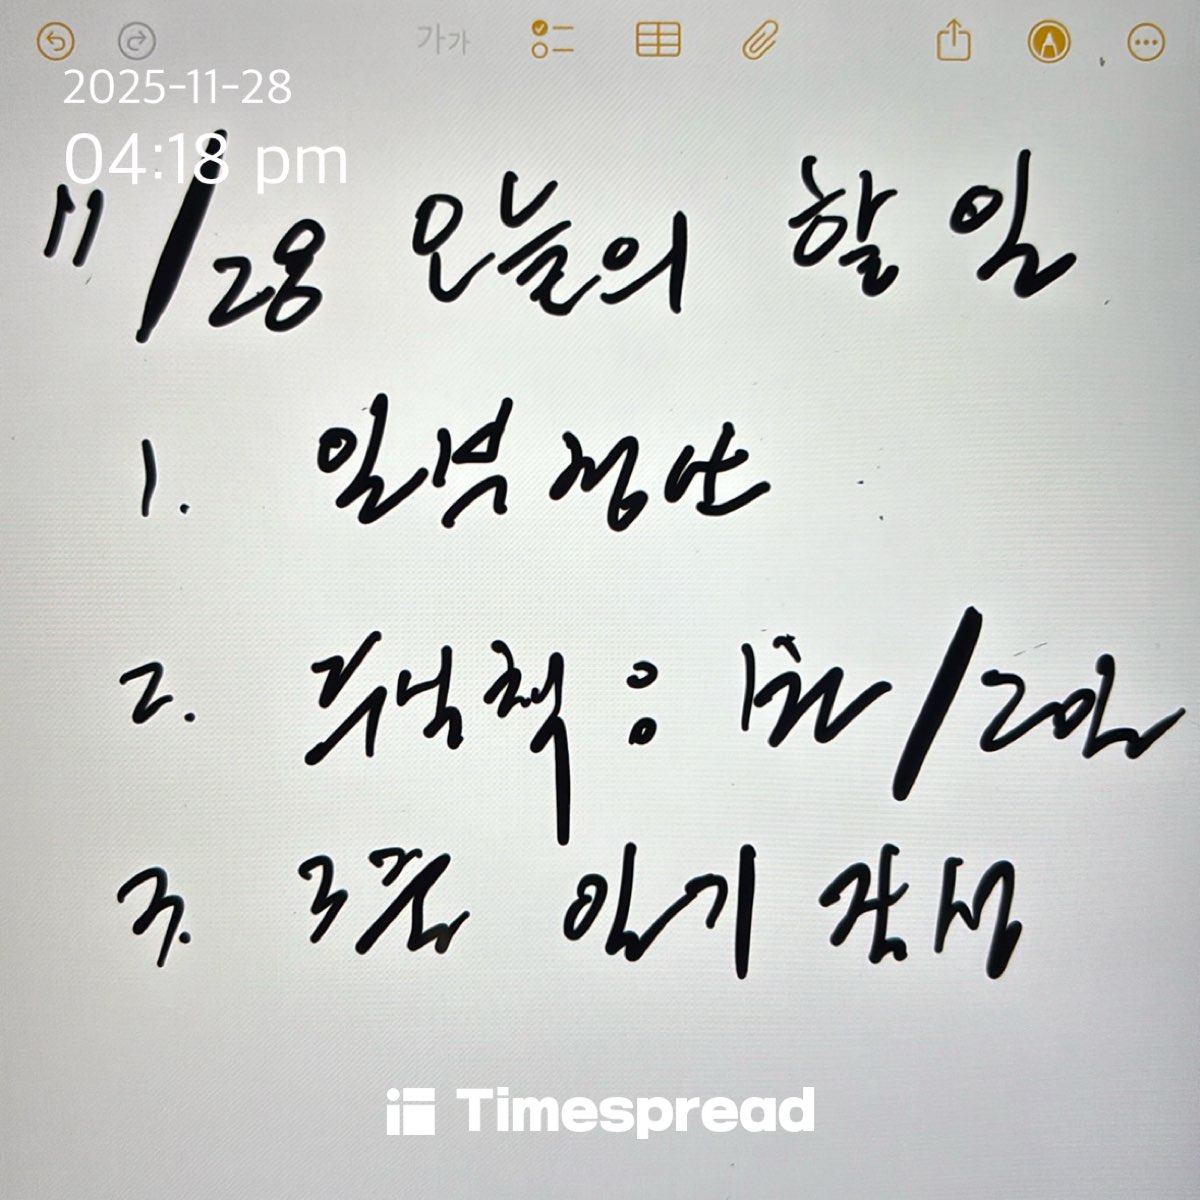 가가
2025-11-28
04:18 pm
11/28 오늘의 할 일
1. 일부 정산
2. : /2일
3. 3줄 일기 작성
Timespread